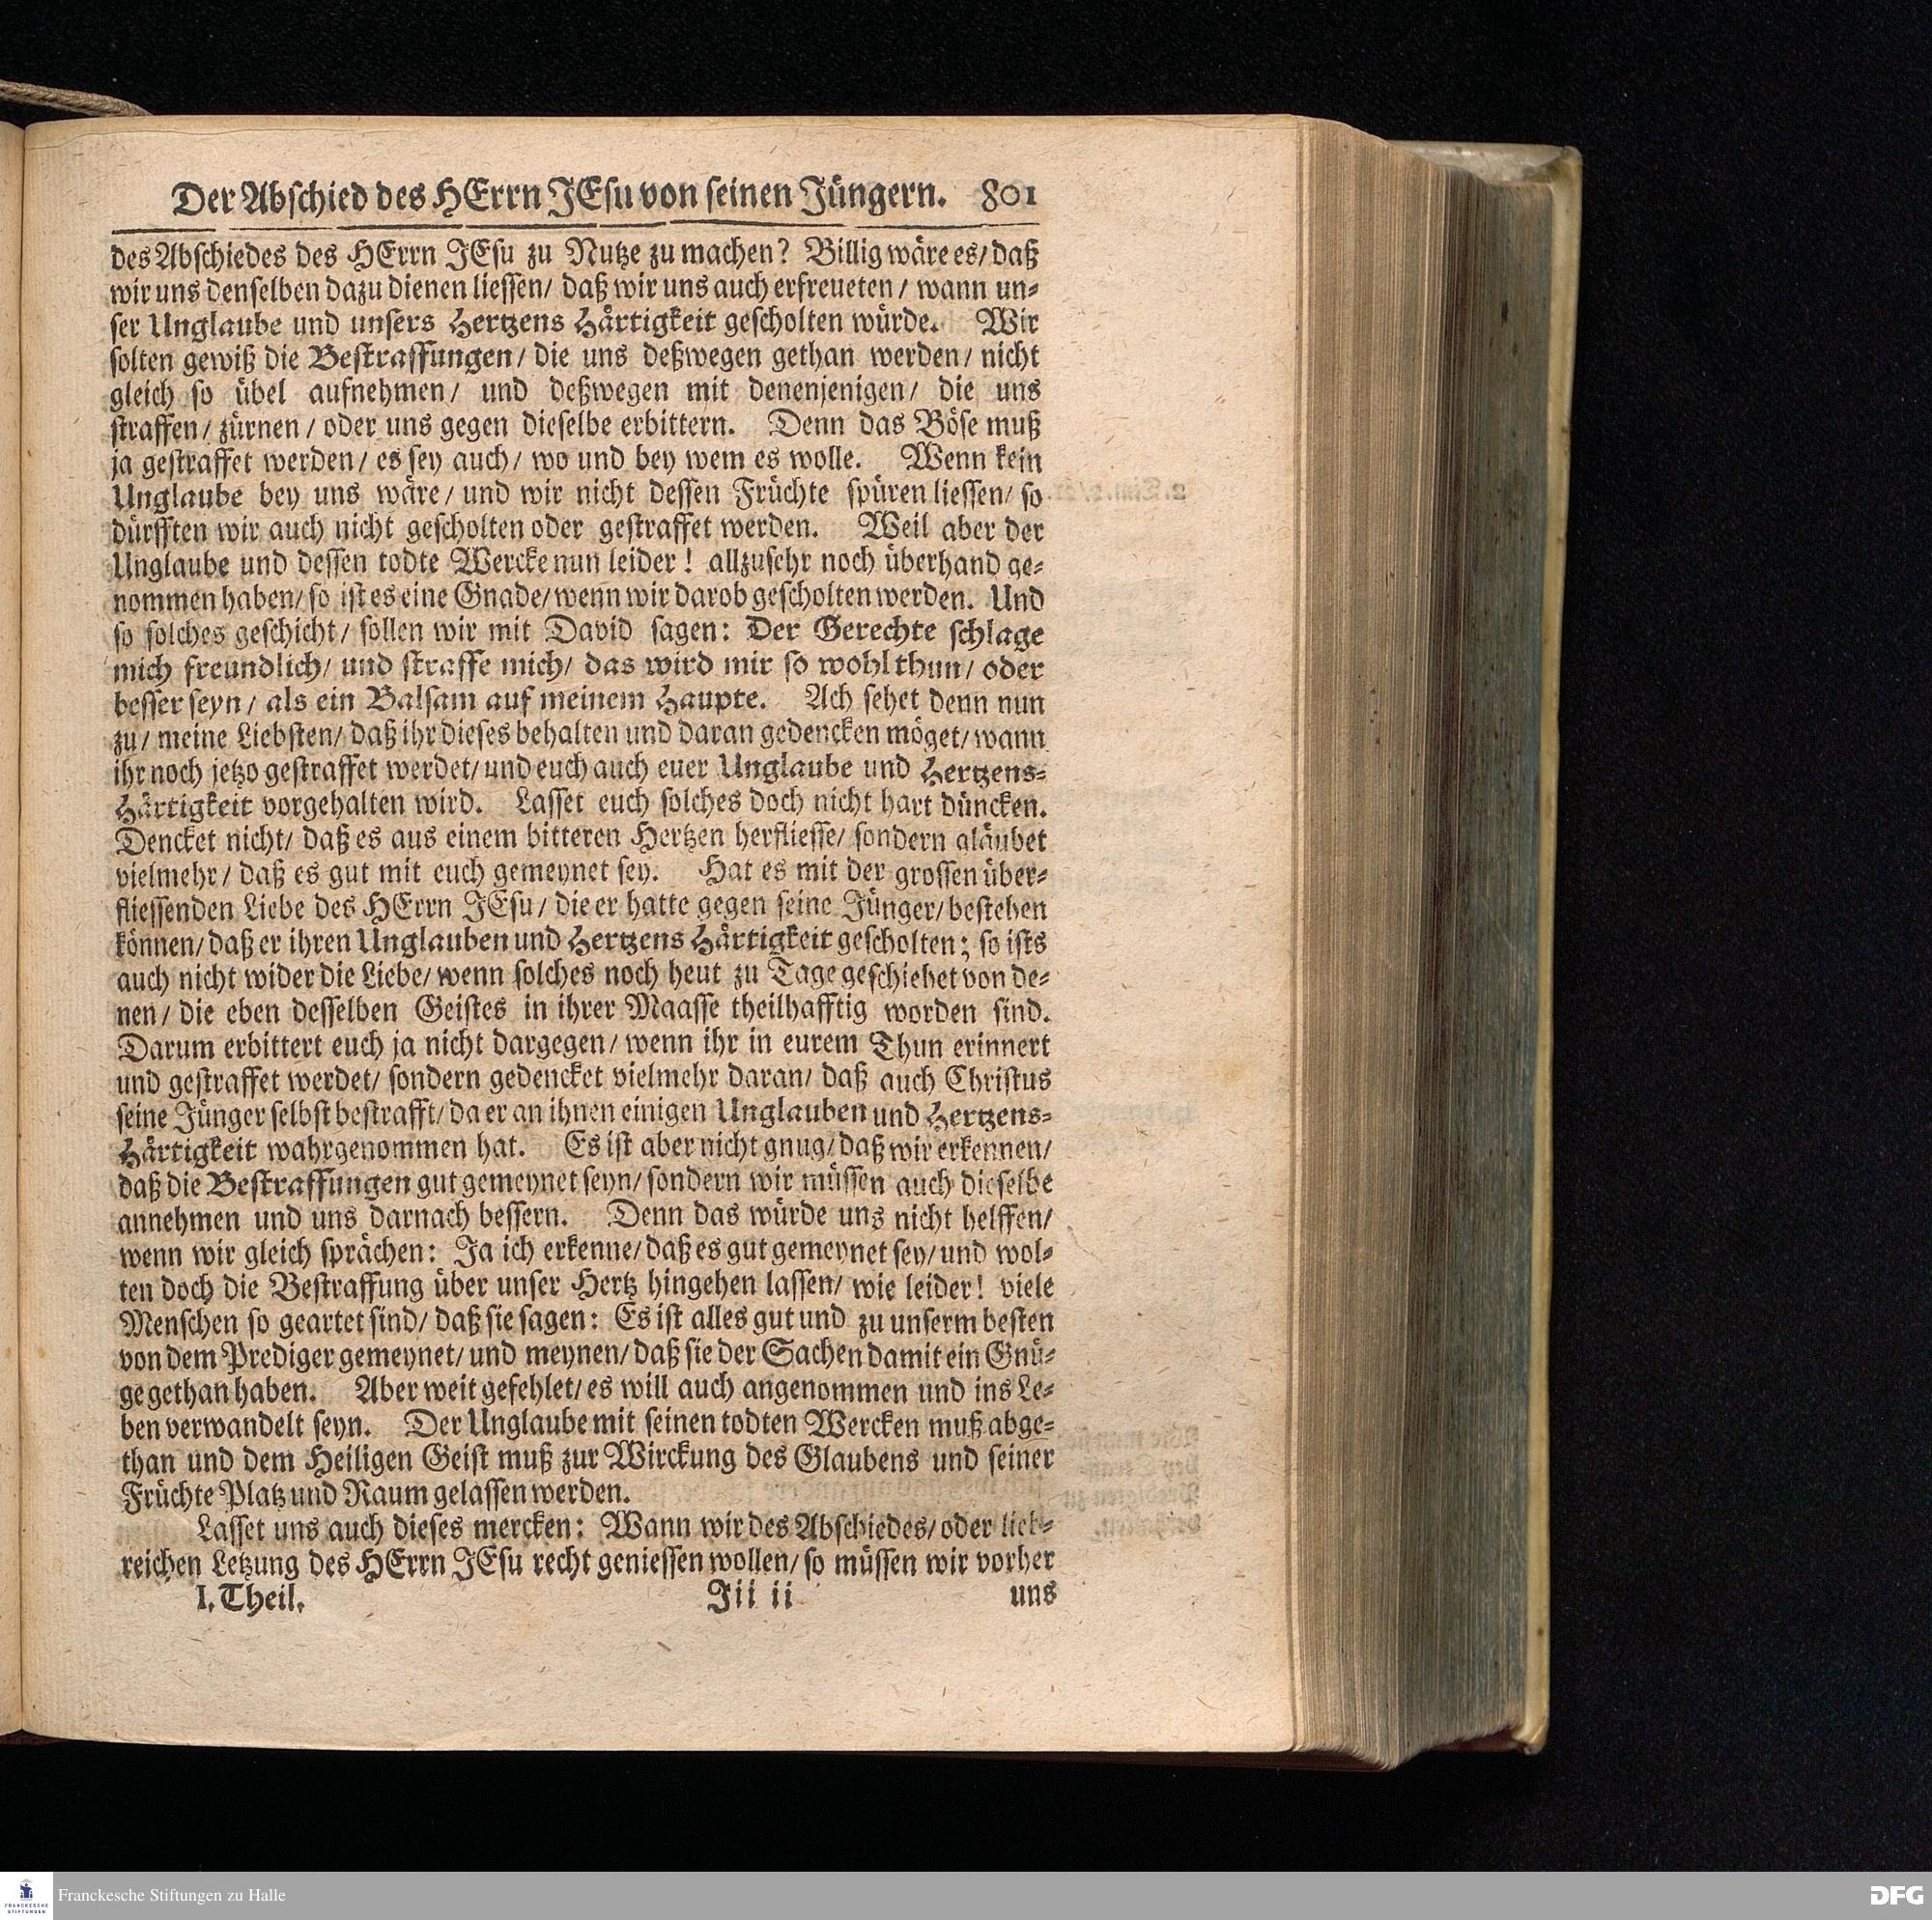 Der Abschied des HErrn JEsu von seinen Jüngern. 801
des Abschiedes des HErrn JEsu zu Nutze zu machen? Billig wäre es/ daß
wir uns denselben dazu dienen liessen/ daß wir uns auch erfreueten/ wann un-
ser Unglaube und unsers Hertzens Härtigkeit gescholten würde. Wir
solten gewiß die Bestraffungen/ die uns deßwegen gethan werden/ nicht
gleich so übel aufnehmen/ und deßwegen mit denenjenigen/ die uns
straffen/ zürnen/ oder uns gegen dieselbe erbittern. Denn das Böse muß
ja gestraffet werden/ es sey auch/ wo und bey wem es wolle. Wenn kein
Unglaube bey uns wäre/ und wir nicht dessen Früchte spüren liessen/ so
dürfften wir auch nicht gescholten oder gestraffet werden. Weil aber der
Unglaube und dessen todte Wercke nun leider! allzusehr noch überhand ge-
nommen haben/ so ist es eine Gnade/ wenn wir darob gescholten werden. Und
so solches geschicht/ sollen wir mit David sagen: Der Gerechte schlage
mich freundlich/ und straffe mich/ das wird mir so wohl thun/ oder
besser seyn/ als ein Balsam auf meinem Haupte. Ach sehet denn nun
zu/ meine Liebsten/ daß ihr dieses behalten und daran gedencken möget/ wann
ihr noch jetzo gestraffet werdet/ und euch auch euer Unglaube und Hertzens-
Härtigkeit vorgehalten wird. Lasset euch solches doch nicht hart düncken.
Dencket nicht/ daß es aus einem bitteren Hertzen herfliesse/ sondern gläubet
vielmehr/ daß es gut mit euch gemeynet sey. Hat es mit der grossen über-
fliessenden Liebe des HErrn JEsu/ die er hatte gegen seine Jünger/ bestehen
können/ daß er ihren Unglauben und Hertzens Härtigkeit gescholten; so ists
auch nicht wider die Liebe/ wenn solches noch heut zu Tage geschiehet von de-
nen/ die eben desselben Geistes in ihrer Maasse theilhafftig worden sind.
Darum erbittert euch ja nicht dargegen/ wenn ihr in eurem Thun erinnert
und gestraffet werdet/ sondern gedencket vielmehr daran/ daß auch Christus
seine Jünger selbst bestrafft/ da er an ihnen einigen Unglauben und Hertzens-
Härtigkeit wahrgenommen hat. Es ist aber nicht gnug/ daß wir erkennen/
daß die Bestraffungen gut gemeynet seyn/ sondern wir müssen auch dieselbe
annehmen und uns darnach bessern. Denn das würde uns nicht helffen/
wenn wir gleich sprächen: Ja ich erkenne/ daß es gut gemeynet sey/ und wol-
ten doch die Bestraffung über unser Hertz hingehen lassen/ wie leider! viele
Menschen so geartet sind/ daß sie sagen: Es ist alles gut und zu unserm besten
von dem Prediger gemeynet/ und meynen/ daß sie der Sachen damit ein Gnü-
ge gethan haben. Aber weit gefehlet/ es will auch angenommen und ins Le-
ben verwandelt seyn. Der Unglaube mit seinen todten Wercken muß abge-
than und dem Heiligen Geist muß zur Wirckung des Glaubens und seiner
Früchte Platz und Raum gelassen werden.
Lasset uns auch dieses mercken: Wann wir des Abschiedes/ oder lieb-
reichen Letzung des HErrn JEsu recht geniessen wollen/ so müssen wir vorher
I. Theil. Jii ii uns
FRANCKESCHE STIFTUNGEN
Franckesche Stiftungen zu Halle
DFG